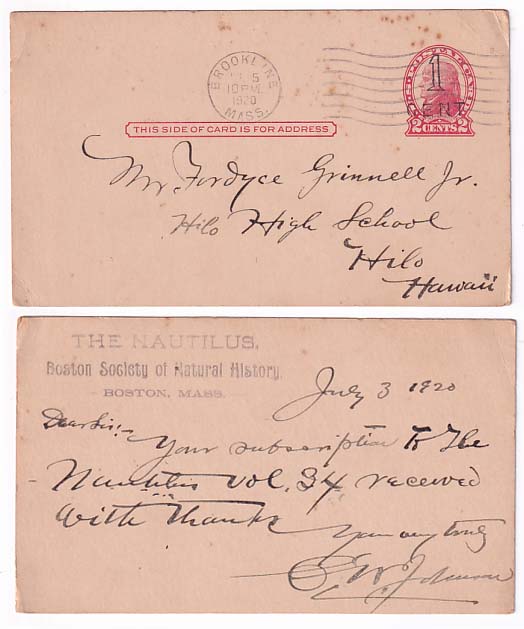 BROOKLINE
5
10 PM
1920
MASS.
1
CENT
2 CENTS 2
THIS SIDE OF CARD IS FOR ADDRESS
Mr. Fordyce Grinnell Jr.
Hilo High School
Hilo
Hawaii
THE NAUTILUS,
Boston Society of Natural History,
BOSTON, MASS.
July 3 1920
Dear Sir:-
Your subscription to the
Nautilus Vol. 34 received
with thanks
Yours very truly
C.W. Johnson